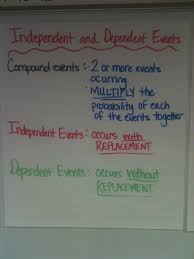 Independent and Dependent Events
Compound events: - 2 or more events
ocurring
- MULTIPLY the
probability of each
of the events together
Independent Events: occurs with
REPLACEMENT
Dependent Events: occurs without
REPLACEMENT